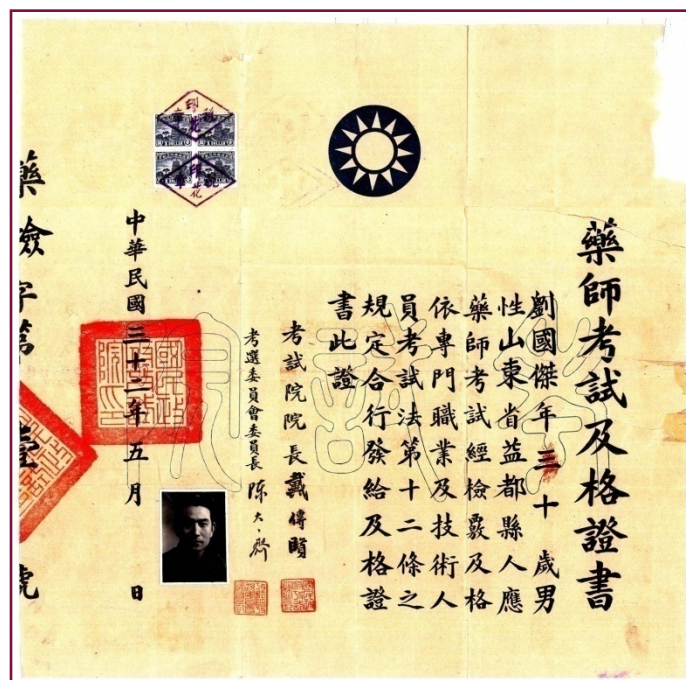 藥師考試及格證書
劉國傑年三十歲男
性山東省益都縣人應
藥師考試經檢覈及格
依專門職業及技術人
員考試法第十二條之
規定合行發給及格證
書此證
考試院院長戴傳賢
考選委員會委員長陳大齊
中華民國三十二年五月 日
藥檢字第壹號
印花
稅